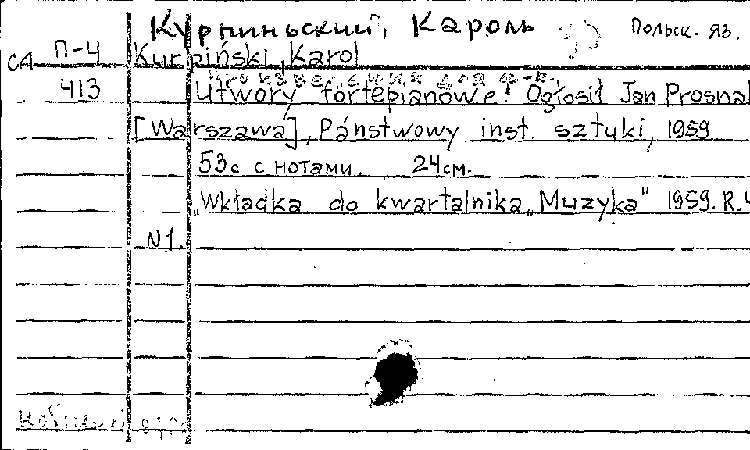 Курпиньский, Кароль Польск. яз.
СА П-4 Kurpiński, Karol
413 Utwory fortepianowe. Ogłosił Jan Prosnal
[Warszawa], Państwowy inst. sztuki, 1959
53с с нотами. 24см.
„Wkładka do kwartalnika „Muzyka" 1959. R.4
N1.